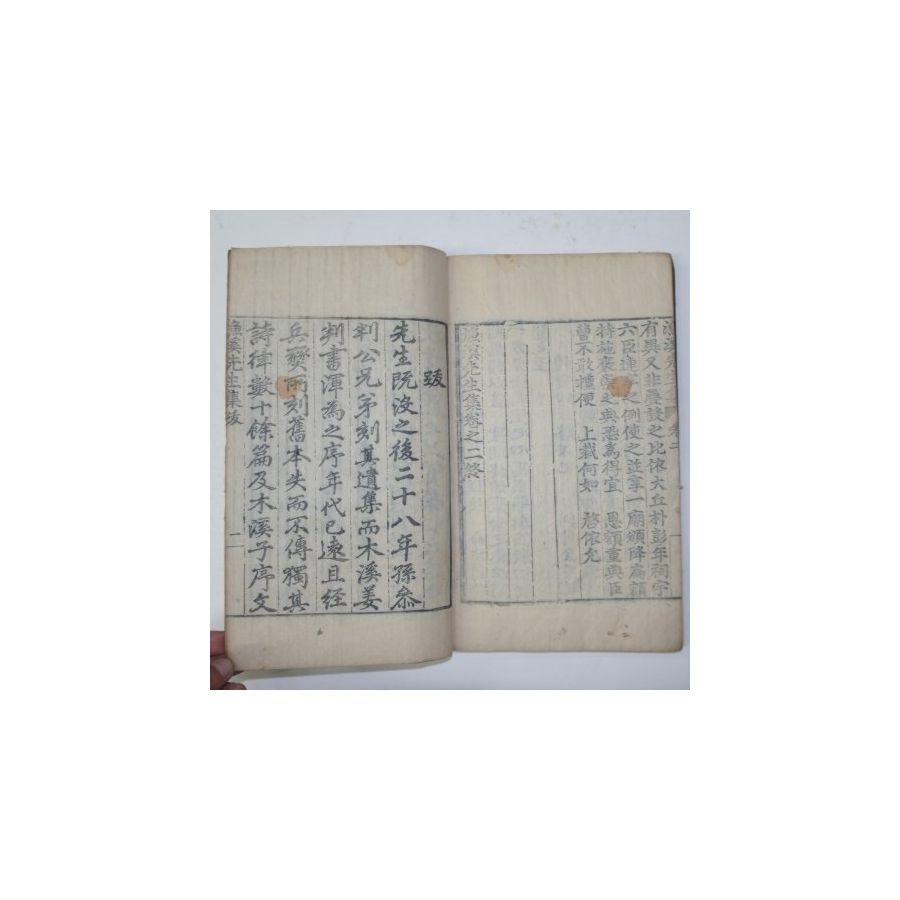 有異又非嚴設之比依大丘朴彭年祠宇
六臣建之例使之並享一廟頒降扁額
特施褒之典恐為得宜 恩額重典臣
曹不敢擅便 上裁何如 啓依允
漁溪先生集卷之二終
跋
先生既沒之後二十八年孫叅
判公兄弟刻其遺集而木溪姜
判書渾為之序年代已遠且經
兵燹所刻舊本失而不傳獨其
詩律數十餘篇及木溪子序文
漁溪先生集跋
一